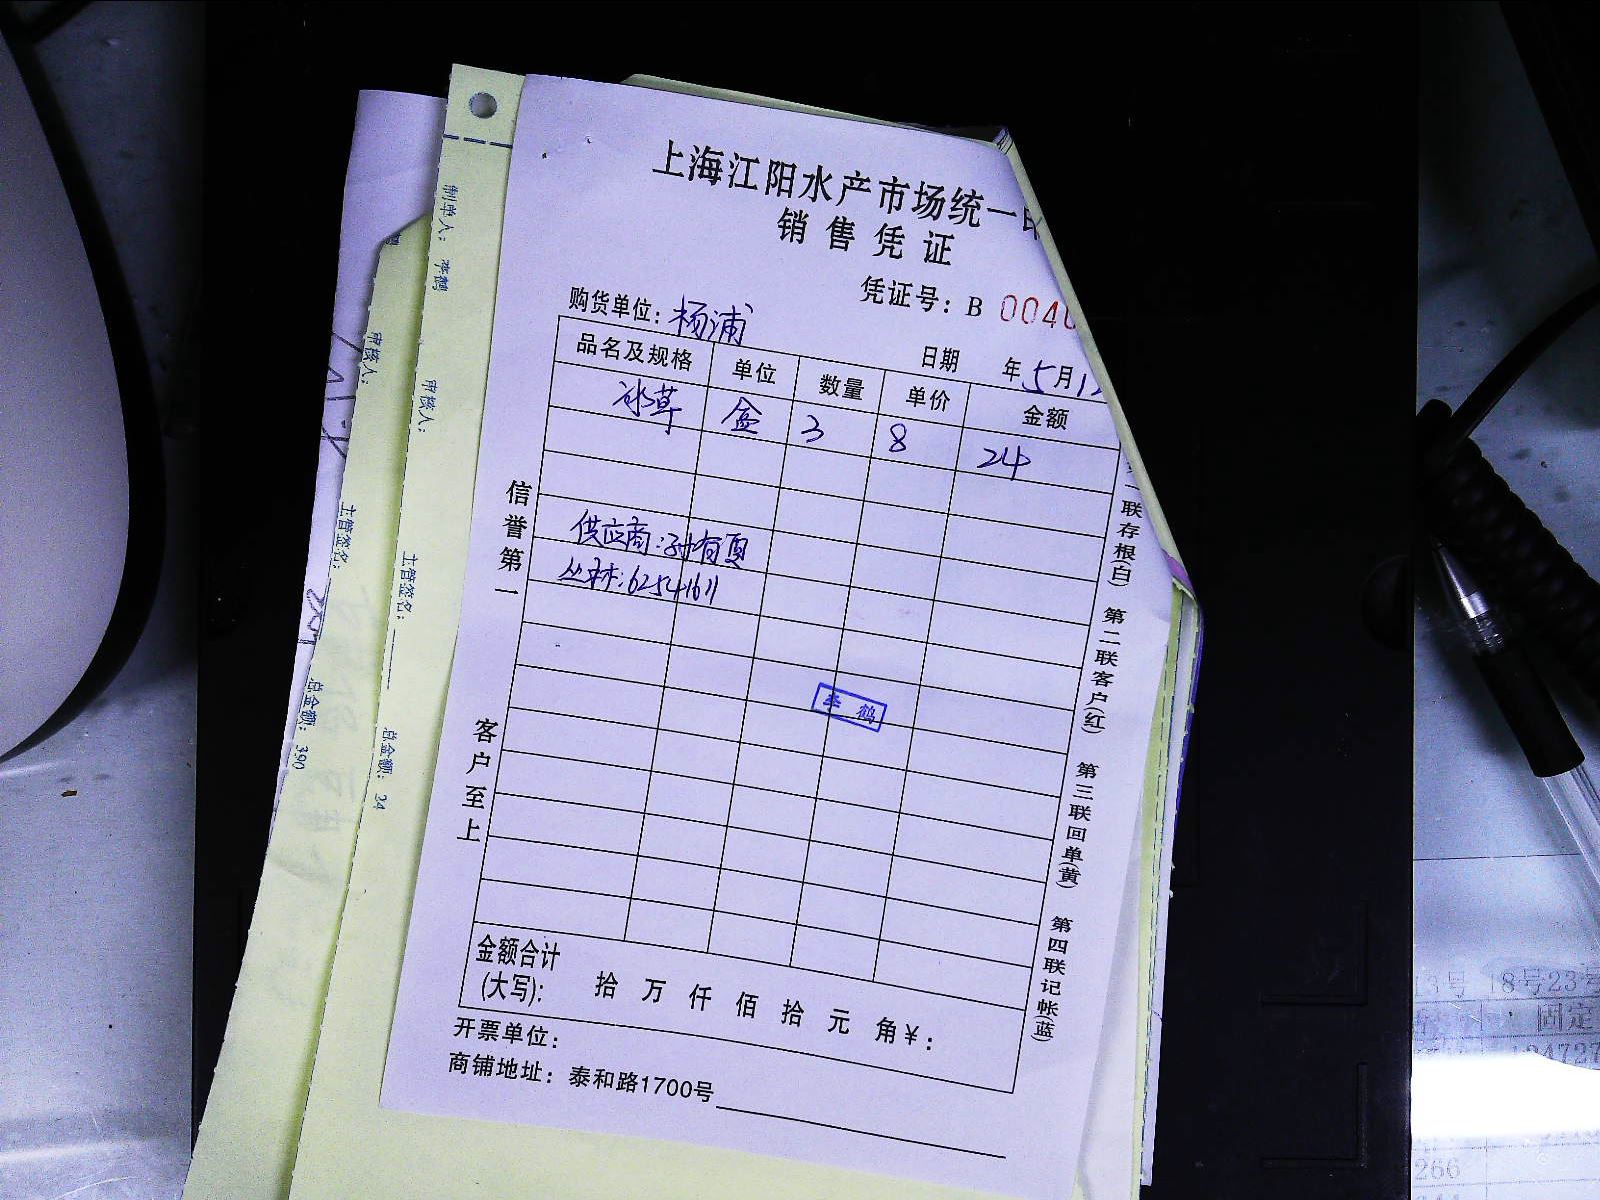 上海江阳水产市场统一印
销售凭证
凭证号：B 0040
购货单位：杨浦
日期 年5月12
品名及规格 单位 数量 单价 金额
冰草 盒 3 8 24
供应商：孙有良
丛林：62541611
李鹤
信誉第一
客户至上
联存根(白) 第二联客户(红) 第三联回单(黄) 第四联记帐(蓝)
金额合计
(大写)： 拾 万 仟 佰 拾 元 角 ¥：
开票单位：
商铺地址：泰和路1700号
制单人：李鹤 审核人： 主管签名： 总金额：24
审核人： 主管签名： 总金额：390
13号 8号23号
固定
266